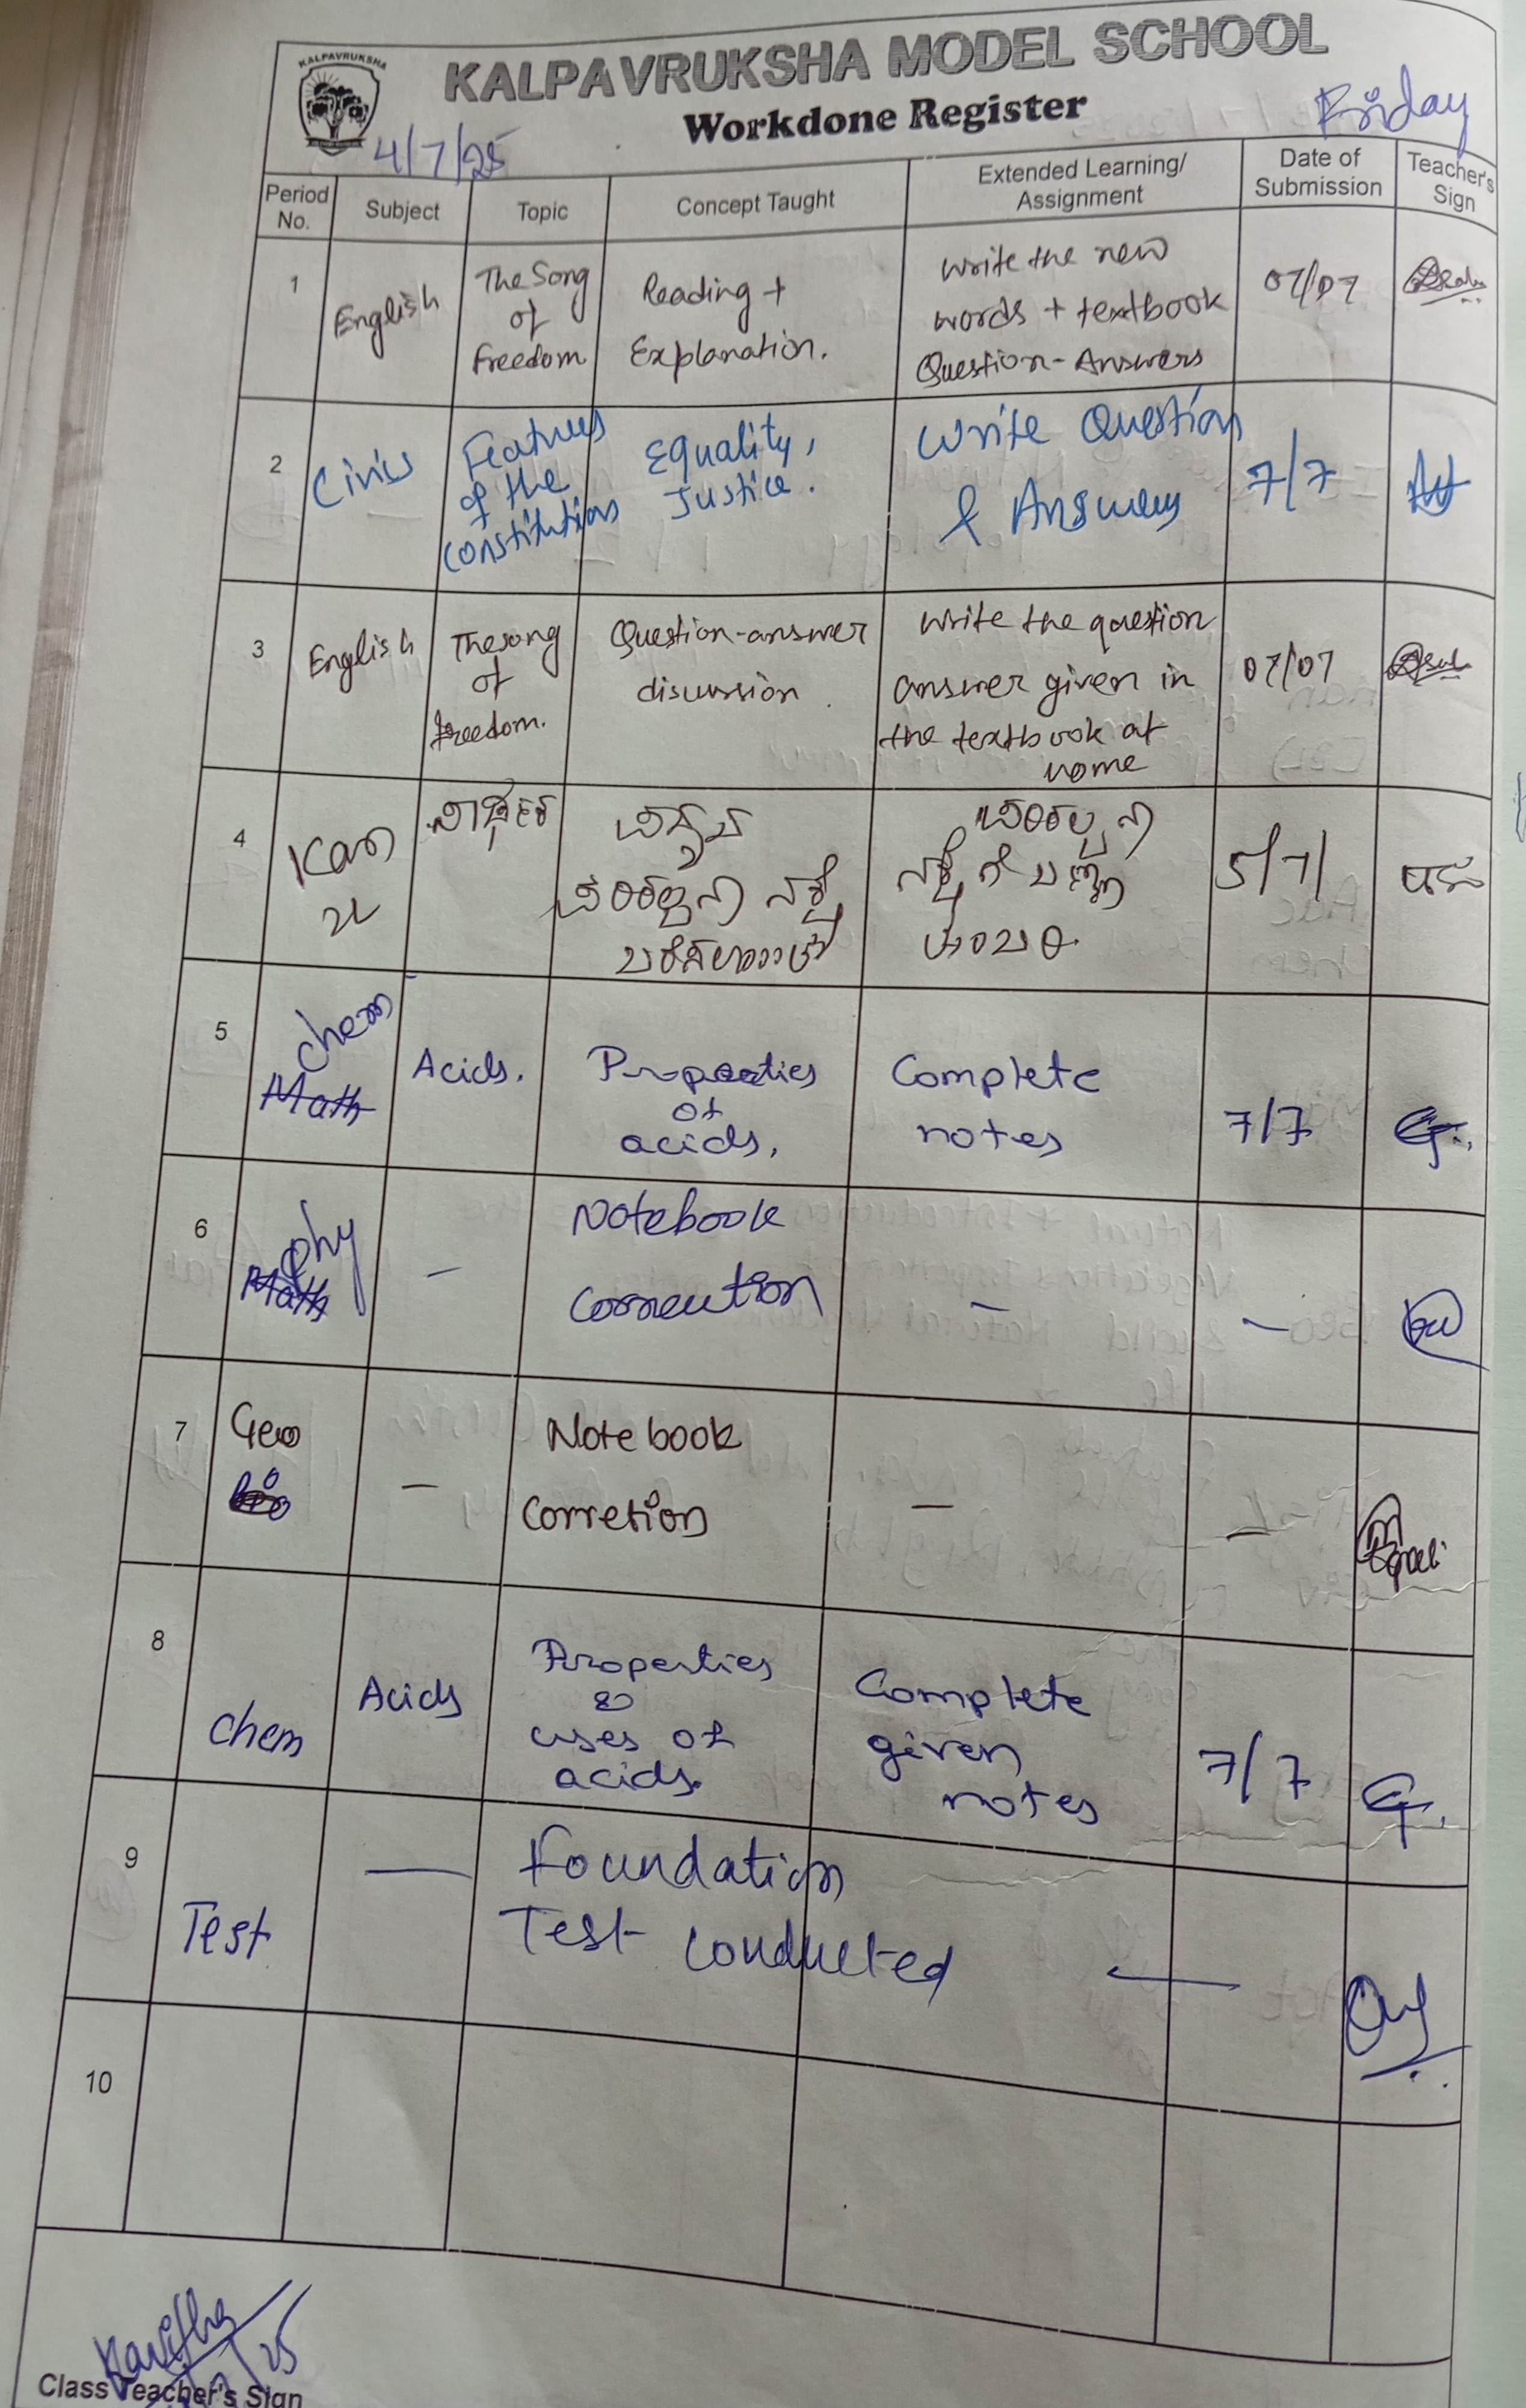 KALPAVRUKSHA
KALPAVRUKSHA MODEL SCHOOL
Workdone Register
4/7/25
Friday
Period No.
Subject
Topic
Concept Taught
Extended Learning/
Assignment
Date of
Submission
Teacher's
Sign
1
English
The Song
of
Freedom
Reading +
Explanation.
Write the new
words + textbook
Question-Answers
07/07
2
Civics
Features
of the
Constitutions
Equality,
Justice.
Write Question
& Answers
7/7
3
English
The song
of
freedom.
Question-answer
discussion
Write the question
answer given in
the textbook at
home
07/07
4
Kan
5/7/
5
Chem
Math
Acids.
Properties
of
acids.
Complete
notes
7/7
6
phy
Math
—
Notebook
Correution
—
—
7
Geo
bio
—
Notebook
Corretion
—
—
8
Chem
Acids
Properties
&
uses of
acids.
Complete
given
notes
7/7
9
Test
—
Foundation
Test conducted
—
10
Kavitha
Class Teacher's Sign